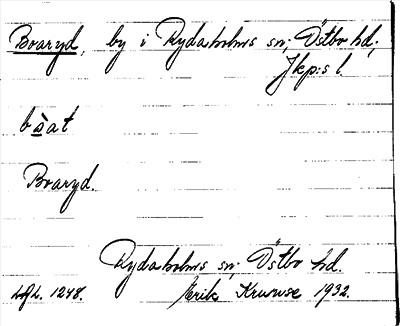 Boaryd, by i Rydaholms sn; Östbo hd;
Jkp:s l.
bo̲at
Boaryd.
Rydaholms sn; Östbo hd.
Erik Kruuse 1932.